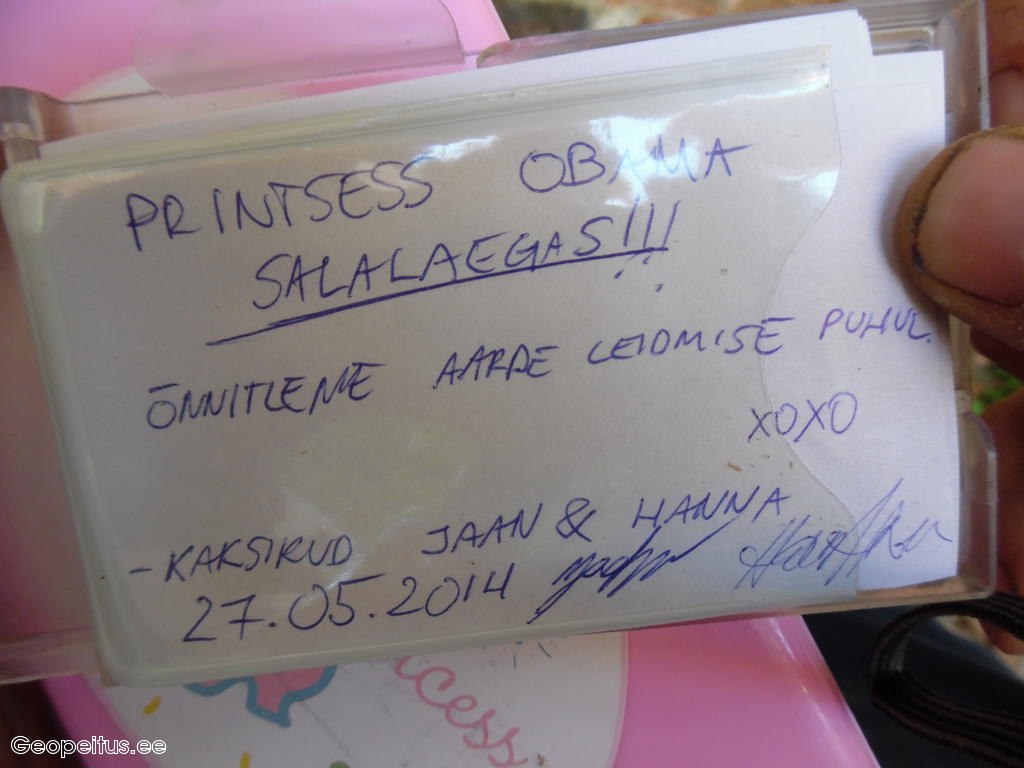 PRINTSESS OBAMA
SALALAEGAS!!!
ÕNNITLEME AARDE LEIDMISE PUHUL.
XOXO
- KAKSIKUD JAAN & HANNA
27.05.2014
icess
Geopeitus.ee